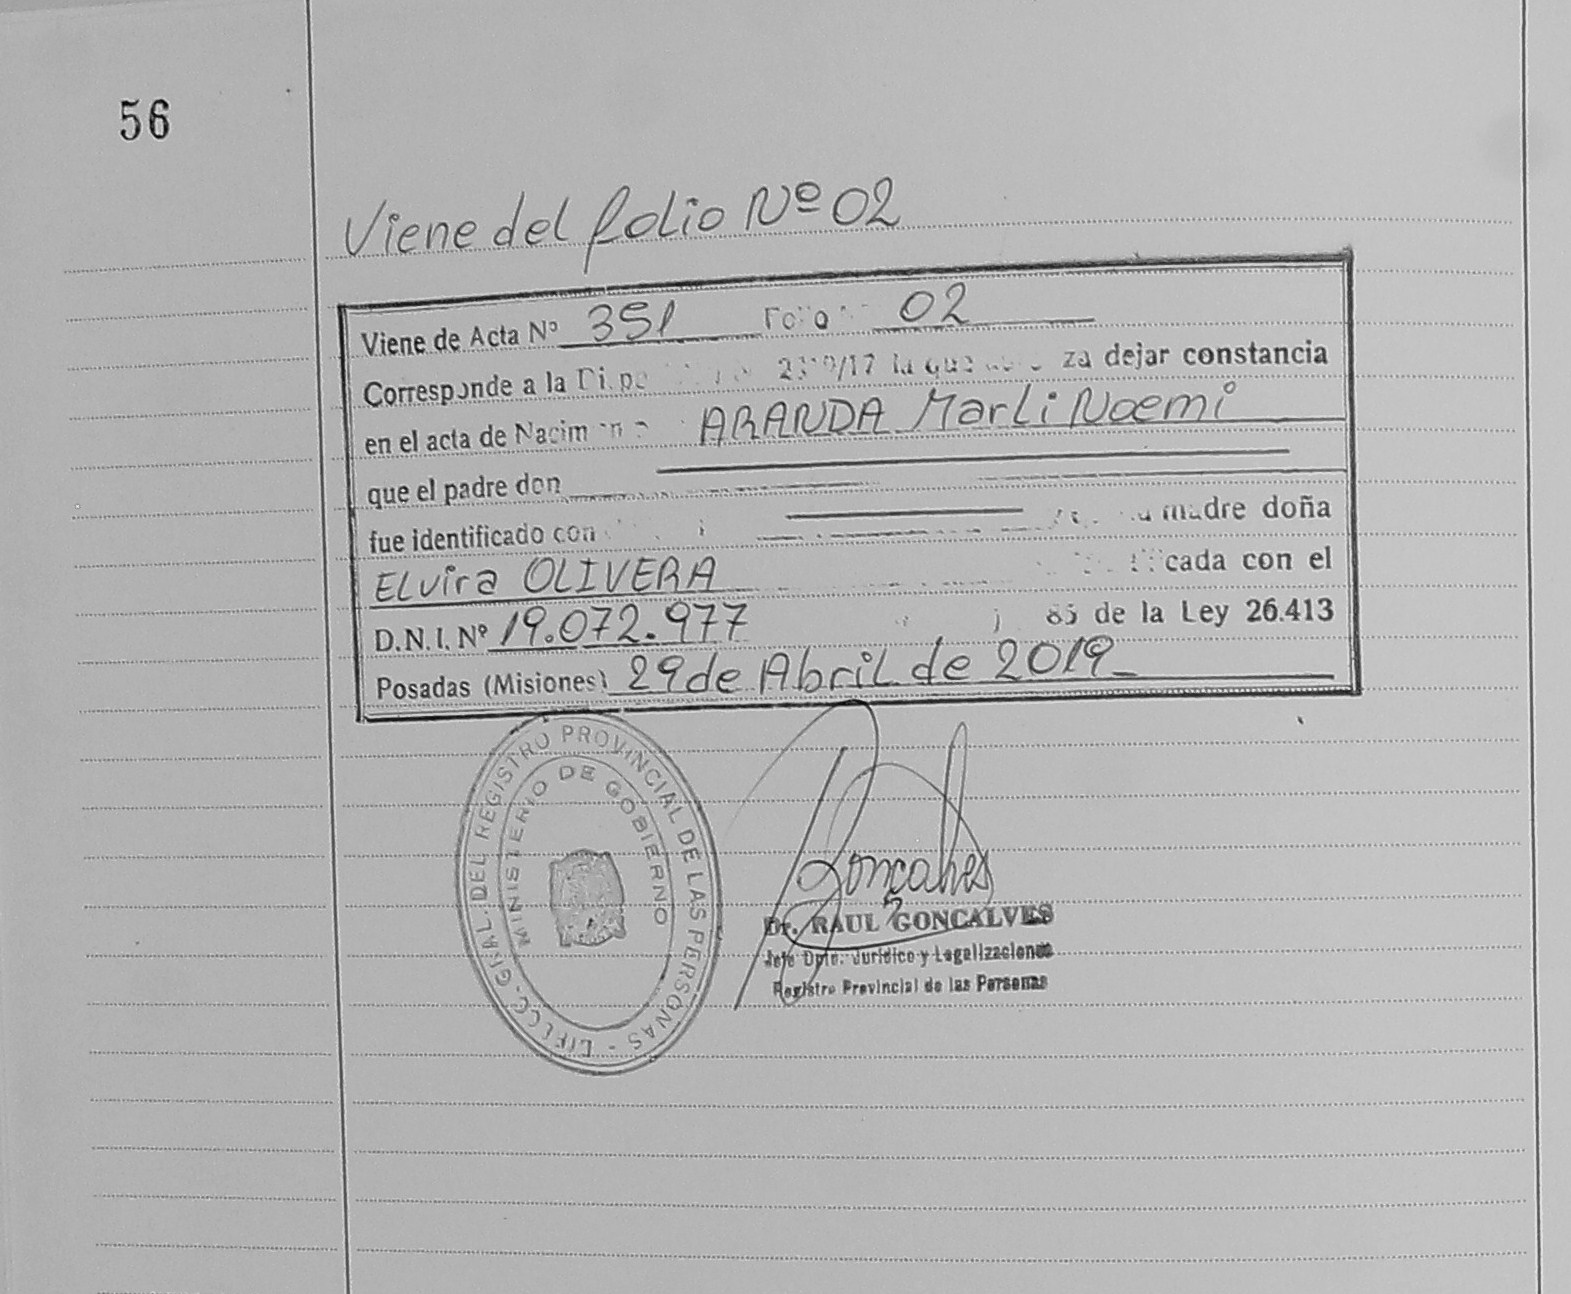 56
Viene del folio Nº 02
Viene de Acta Nº 351 Folio 02
Corresponde a la 2310/17 la que dejar constancia
en el acta de ARANDA Marli Noemi
que el padre don
fue identificado con madre doña
Elvira OLIVERA cada con el
D.N.I. Nº 19.072.977 85 de la Ley 26.413
Posadas (Misiones) 29 de Abril de 2019
GRAL. DEL REGISTRO PROVINCIAL DE LAS PERSONAS
MINISTERIO DE GOBIERNO
Goncalves
Dr. RAUL GONCALVES
Jefe Dpto. Jurídico y Legalizaciones
Registro Provincial de las Personas